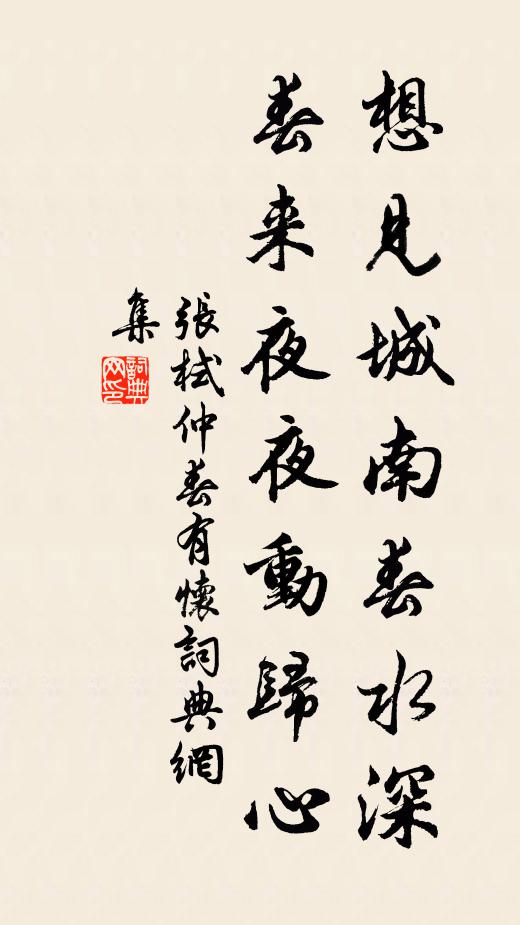 想見城南春水深
春来夜夜動歸心
張栻仲春有懷詞典網
集
詞典
网印